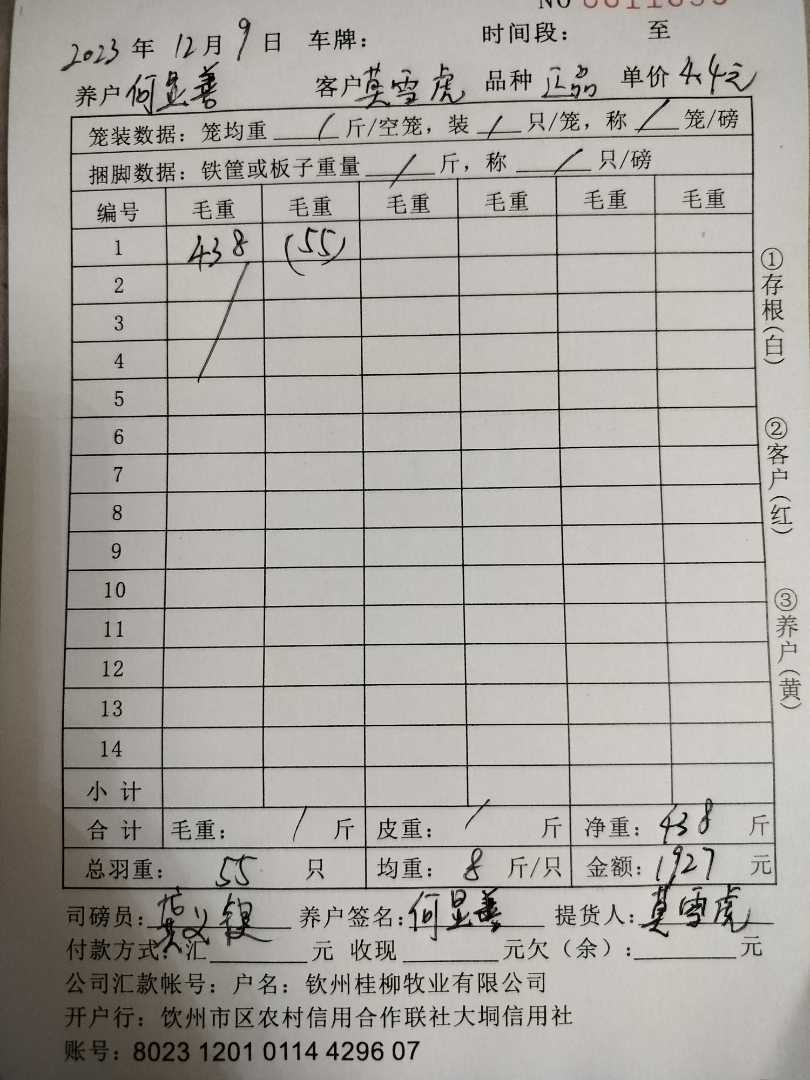 NO 0011895
2023 年 12 月 9 日 车牌： 时间段： 至
养户 何显善 客户 莫雪虎 品种 正品 单价 4.4元
笼装数据：笼均重 / 斤/空笼，装 / 只/笼，称 / 笼/磅
捆脚数据：铁筐或板子重量 / 斤，称 / 只/磅
编号 毛重 毛重 毛重 毛重 毛重 毛重
1 438 (55)
2
3
4
5
6
7
8
9
10
11
12
13
14
小计
合计 毛重： / 斤 皮重： / 斤 净重：438 斤
总羽重： 55 只 均重： 8 斤/只 金额：1927 元
司磅员： 养户签名：何显善 提货人：莫雪虎
付款方式：汇 元 收现 元欠（余）： 元
公司汇款帐号：户名：钦州桂柳牧业有限公司
开户行：钦州市区农村信用合作联社大垌信用社
账号：8023 1201 0114 4296 07
①存根(白)
②客户(红)
③养户(黄)